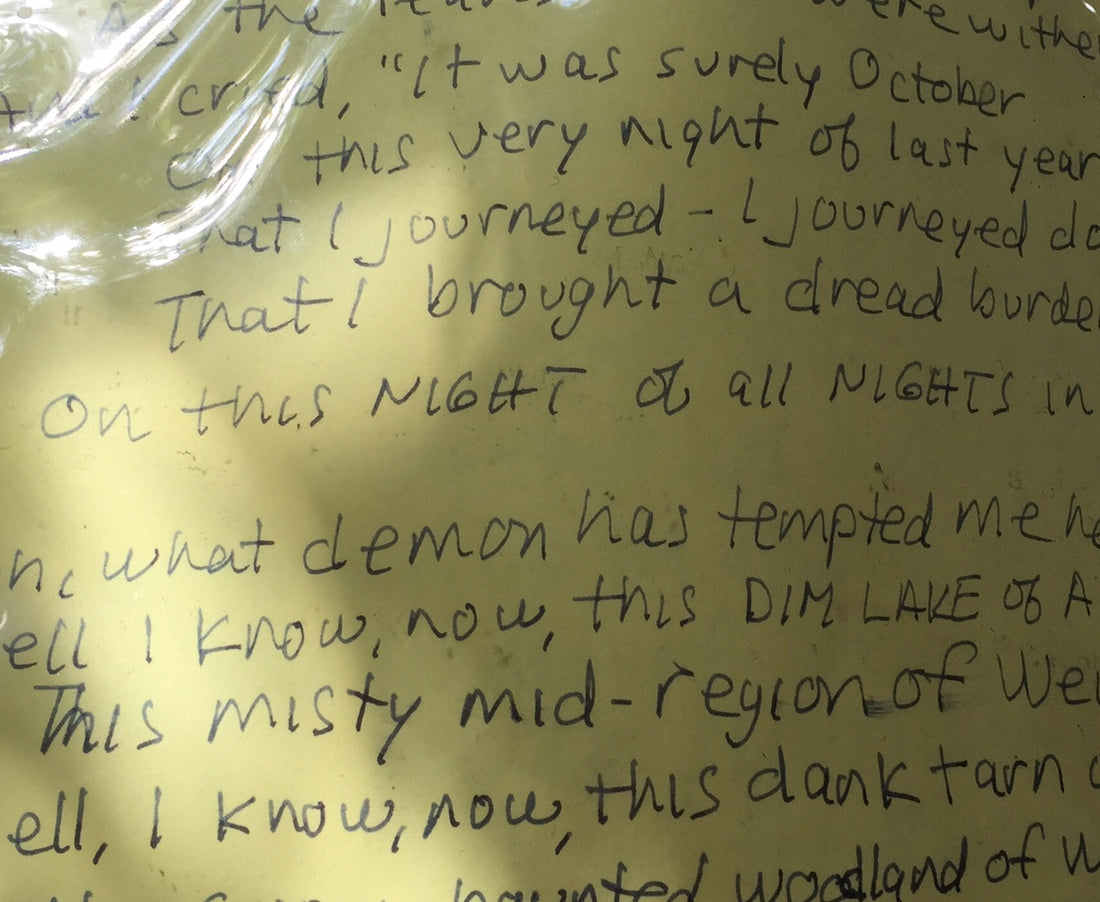 As the were withe
And I cried, "It was surely October
On this very night of last year
That I journeyed - I journeyed do
That I brought a dread burde
On this NIGHT of all NIGHTS in
n, what demon has tempted me he
ell I know, now, this DIM LAKE of A
This misty mid-region of Wei
ell, I know, now, this dank tarn o
haunted woodland of W